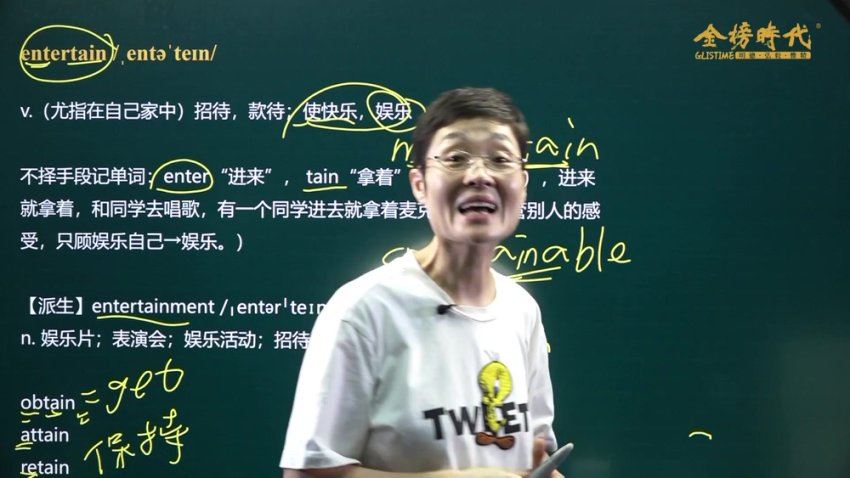 entertain /ˌentəˈteɪn/
金榜時代
GLISTIME
v.（尤指在自己家中）招待，款待；使快乐，娱乐
ain
不择手段记单词：enter “进来”， tain “拿着” ，进来
就拿着，和同学去唱歌，有一个同学进去就拿着麦 别人的感
受，只顾娱乐自己→娱乐。）
ainable
【派生】entertainment /ˌentərˈteɪn
n. 娱乐片；表演会；娱乐活动；招待
obtain = get
attain
retain 保持
TWEET